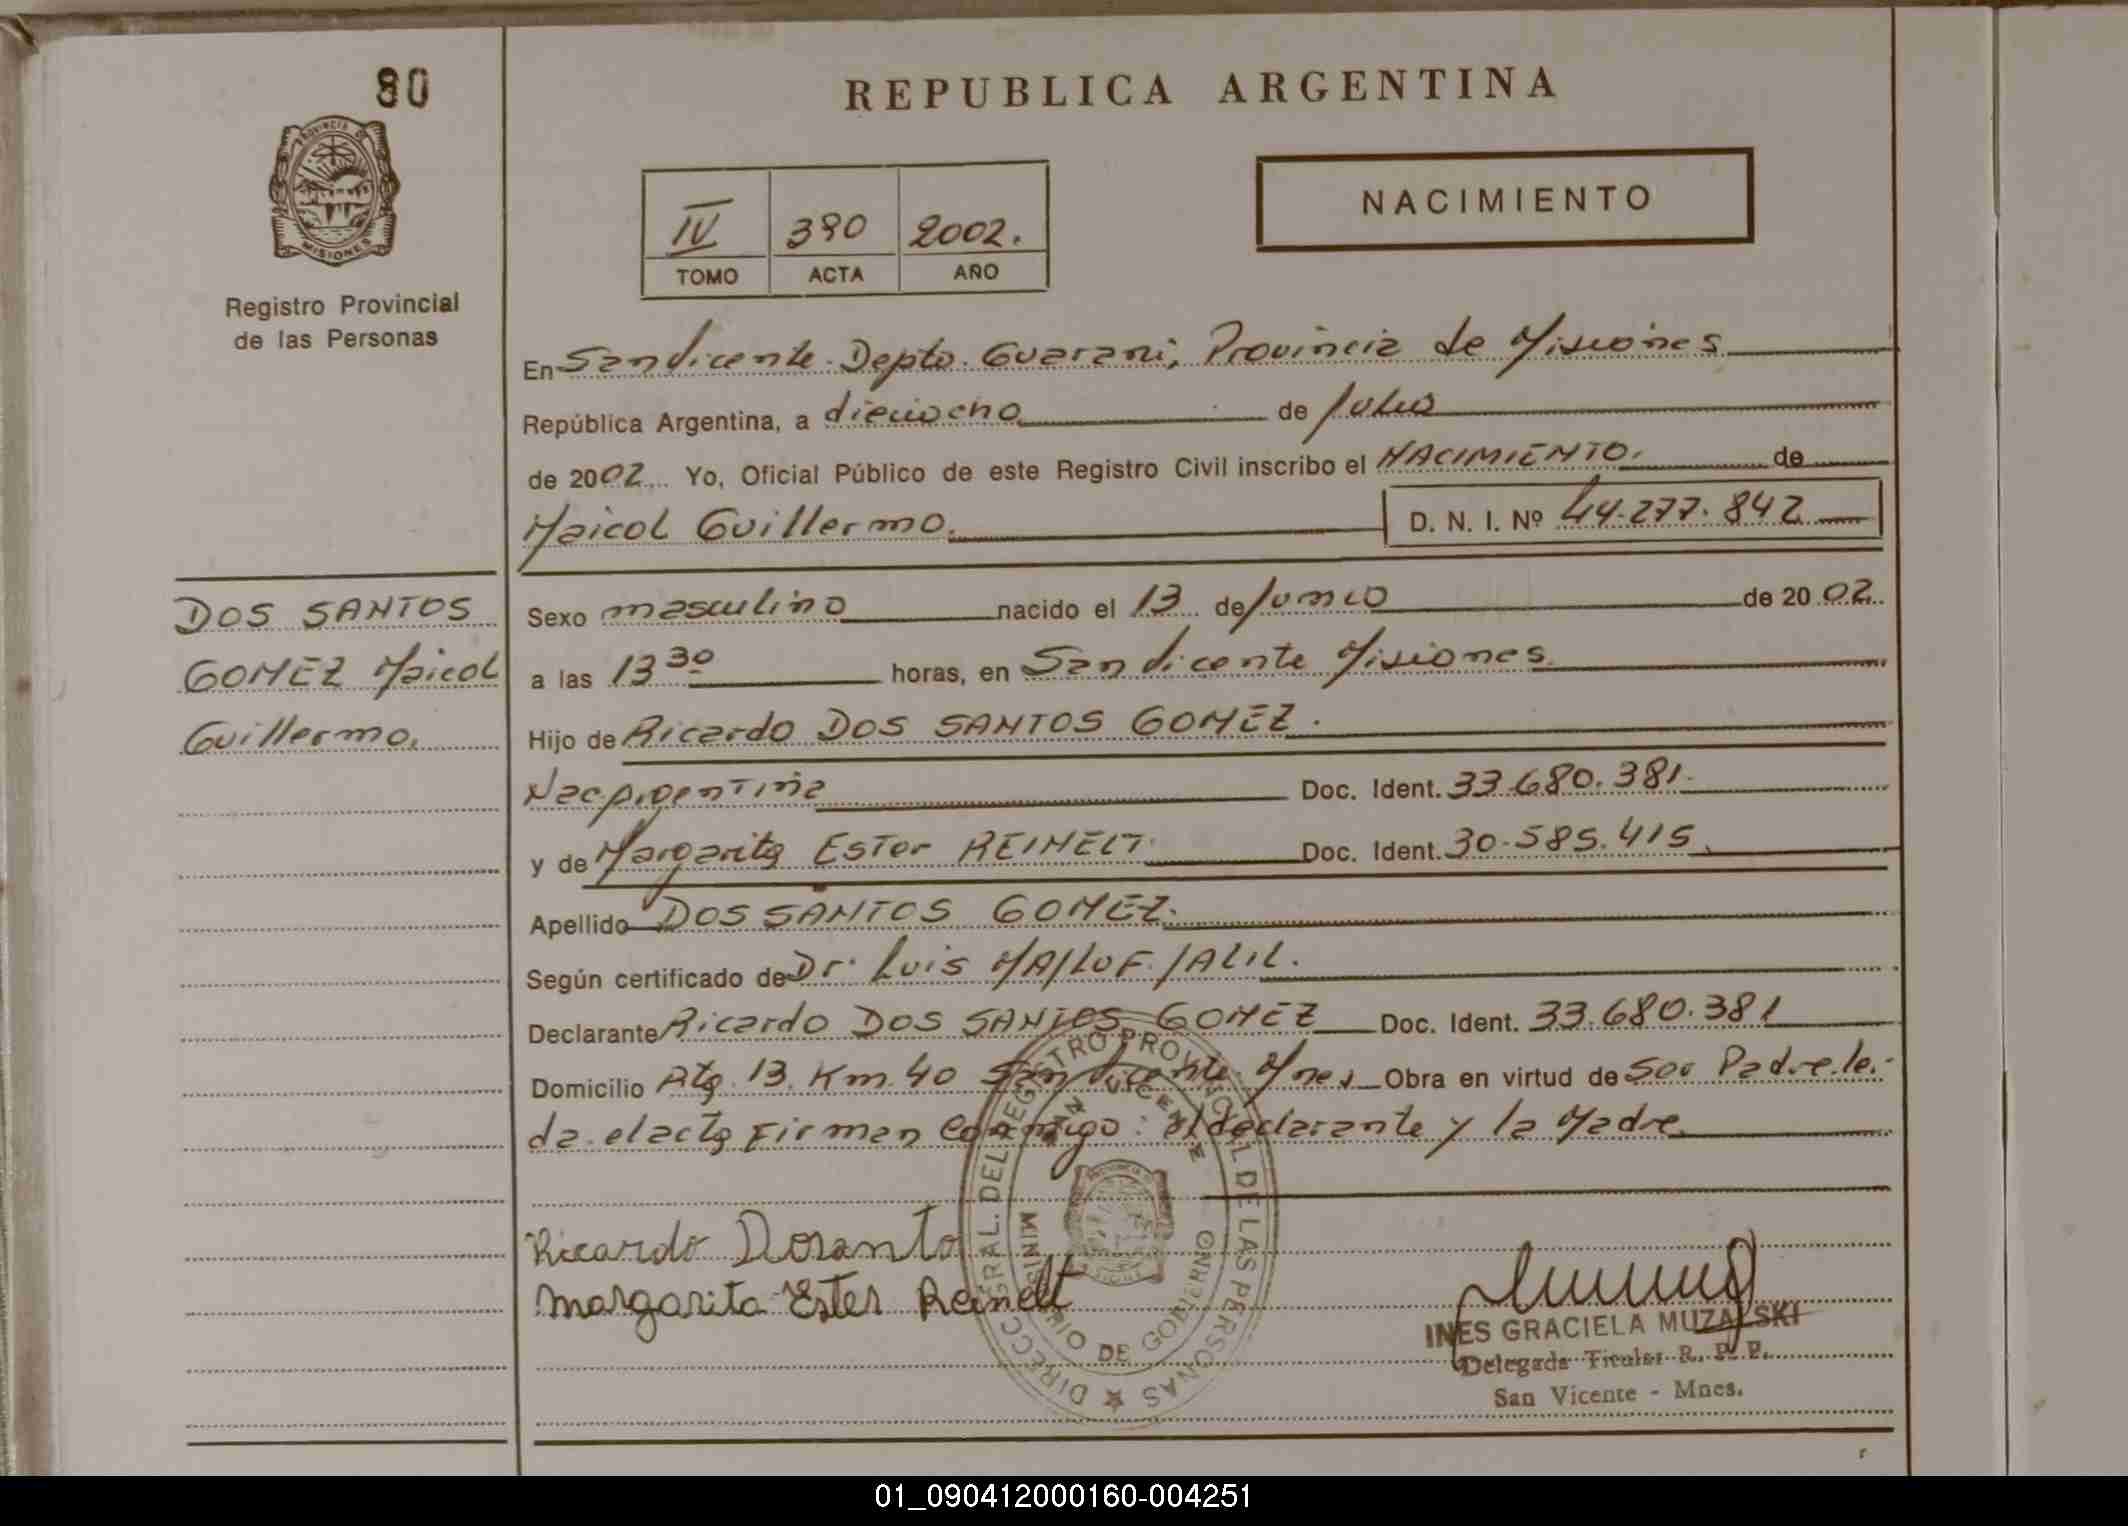 80
REPUBLICA ARGENTINA
PROVINCIA DE
MISIONES
Registro Provincial
de las Personas
IV 390 2002.
TOMO ACTA AÑO
NACIMIENTO
En San Vicente Depto. Guarani, Provincia de Misiones
República Argentina, a dieciocho de Julio
de 2002 Yo, Oficial Público de este Registro Civil inscribo el NACIMIENTO. de
Maicol Guillermo. D. N. I. Nº 44.277.842
DOS SANTOS
GOMEZ Maicol
Guillermo.
Sexo masculino nacido el 13 de Junio de 2002
a las 13 30 horas, en San Vicente Misiones
Hijo de Ricardo DOS SANTOS GOMEZ.
Nac Argentina Doc. Ident. 33.680.381.
y de Margarita Ester REINELT. Doc. Ident. 30.585.415
Apellido DOS SANTOS GOMEZ.
Según certificado de Dr. Luis JALIL.
Declarante Ricardo DOS SANTOS GOMEZ Doc. Ident. 33.680.381
Domicilio Rta. 13. Km. 40 San Vicente Mnes Obra en virtud de ser Padre. le-
da el acta Firman Conmigo: el declarante y la Madre
DIRECC. GRAL. DEL REGISTRO PROVINCIAL DE LAS PERSONAS
SAN VICENTE
MINISTERIO DE GOBIERNO
Ricardo Dosanto
Margarita Ester Reinelt
INES GRACIELA MUZALSKI
Delegada Titular R. P. P.
San Vicente - Mnes.
01_090412000160-004251